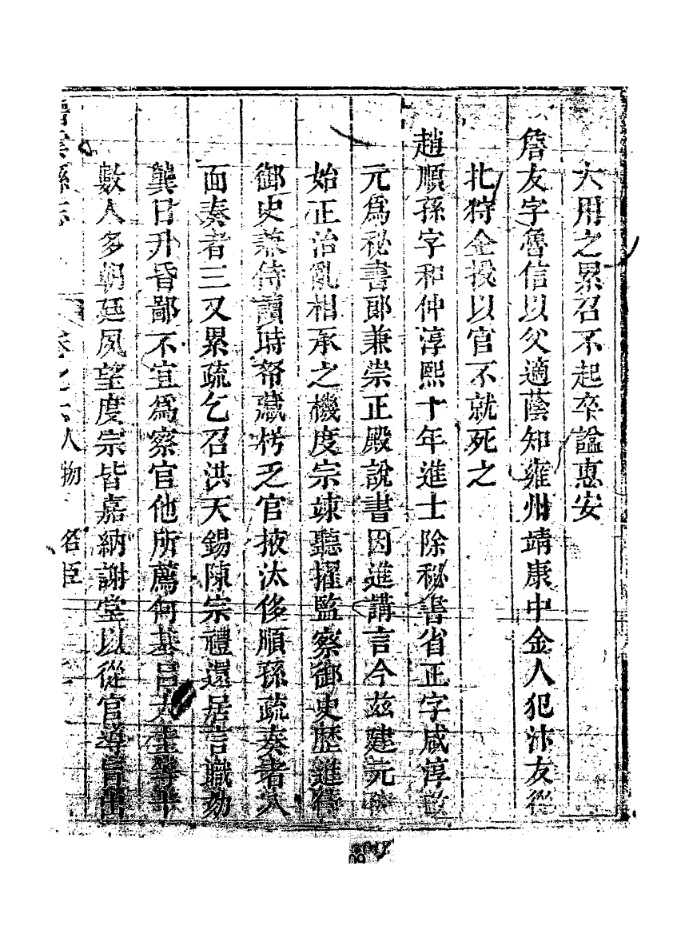 大用之累召不起卒諡惠安
詹友字魯信以父適蔭知雍州靖康中金人犯汴友從
北狩金授以官不就死之
趙順孫字和仲淳熙十年進士除秘書省正字咸淳改
元爲秘書郎兼崇正殿說書因進講言今茲建元
始正治亂相承之機度宗竦聽擢監察御史歷進侍
御史兼侍讀時帑藏枵乏官掖汰侈順孫疏奏者八
面奏者三又累疏乞召洪天錫陳宗禮還居言職劾
龔日升昏鄙不宜爲察官他所薦何基呂 等十
數人多朝廷夙望度宗皆嘉納謝堂以從官導
雲縣志 卷之六人物 名臣